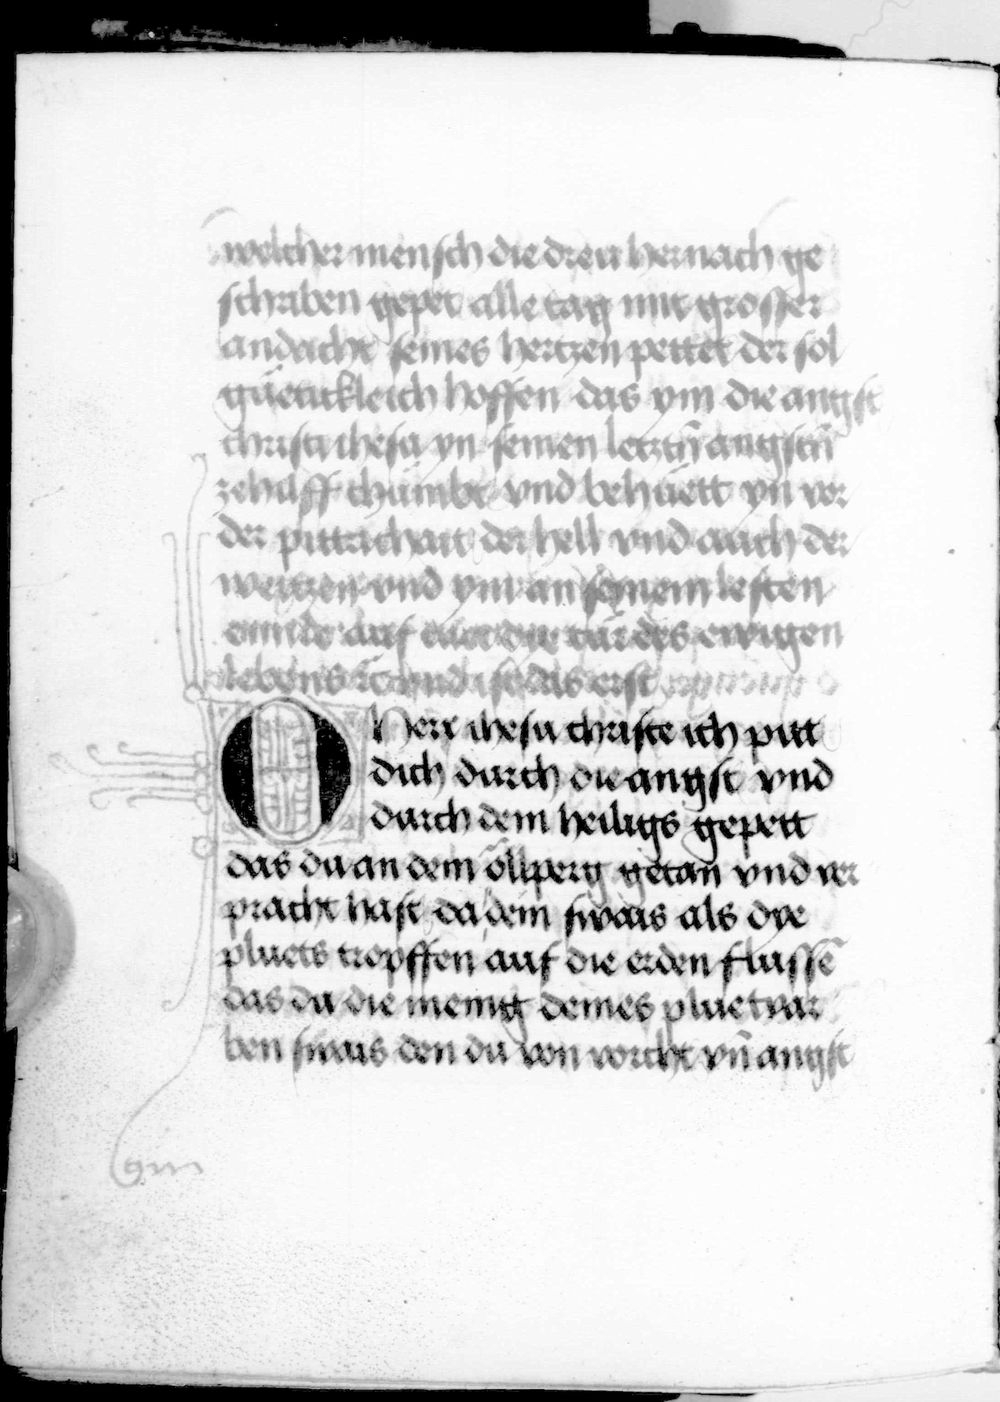 welcher mensch die dreu hernach ge
schriben gepet alle tag mit grosser
andacht seines hertzen pettet der sol
güetickleich hoffen das ym die angst
christi ihesu yn seinen letztn̄ angstn̄
zehilff chümbt vnd behüett yn vor
der pittrichait der hell vnd auch der
weitzen vnd ym an seinem lesten
ennde auf tuet dye tür des ewigen
lebens so das erst
O Herr ihesu christe ich pitt
dich durch die angst vnd
durch dem heiligs gepett
das du an dem öllperg getan vnd ver
pracht hast da dein swais als dye
pluets tropffen auf die erden flussē
das du die menig deines pluetvar
ben swais den du von vorcht vn̄ angst